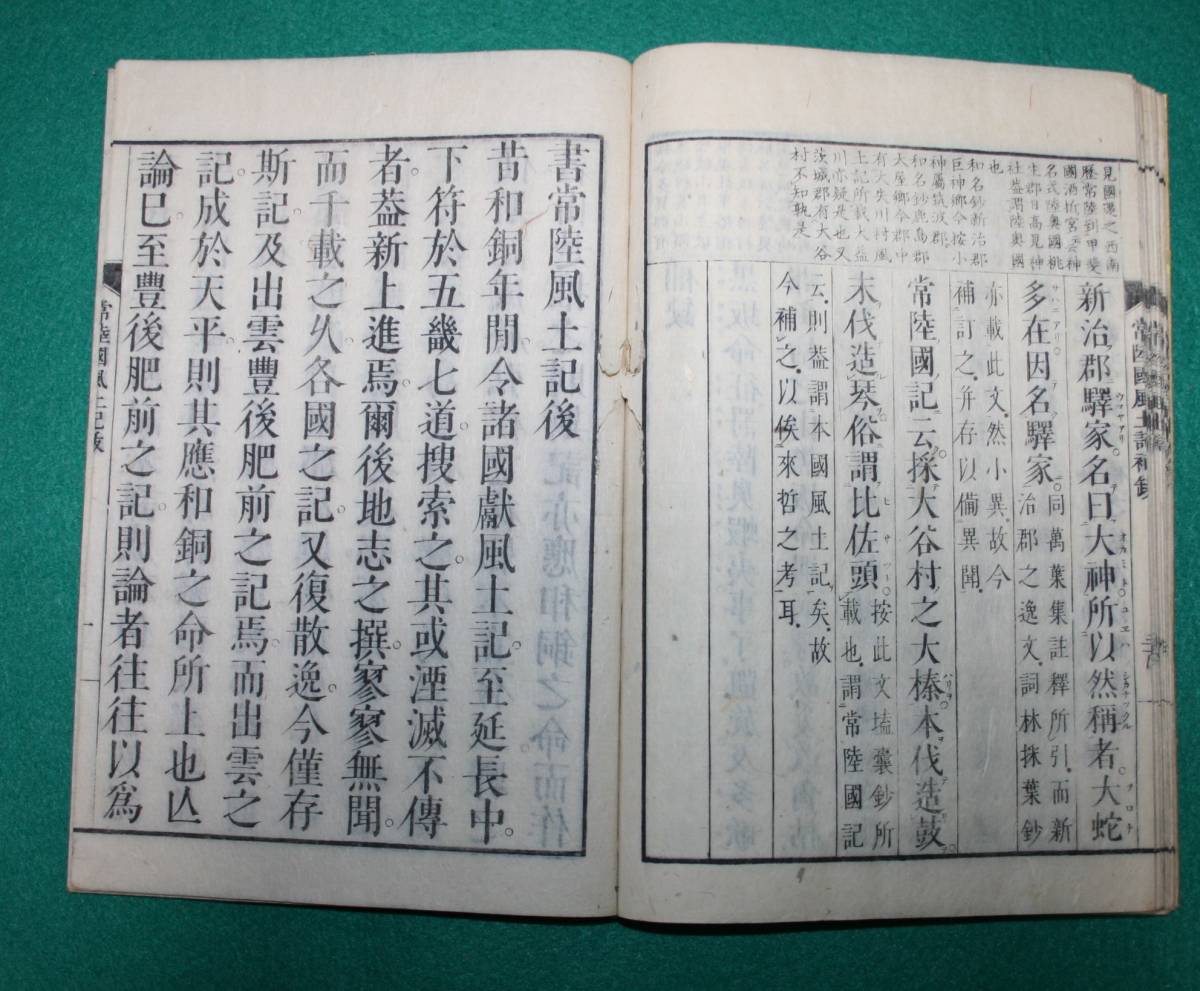 見國還之西南
歷常陸到甲斐
國酒折宮云神
名氏陸奧國桃
生郡日高見神
社蓋謂陸奧國
也
和名鈔新治郡
巨神鄉今按小
神屬筑波郡
和名鈔鹿島郡
大屋鄉今郡中
有大失川村風
土記所載大益
川亦疑是也又
茨城郡有大谷
村不知孰是
新治郡驛家名曰大神所以然稱者大蛇
多在因名驛家
同萬葉集註釋所引而新
治郡之逸文詞林採葉鈔
亦載此文然小異故今
補訂之并存以備異聞
常陸國記云採大谷村之大榛本伐造鼓
末伐造琴俗謂比佐頭
按此文塙囊鈔所
載也謂常陸國記
云則蓋謂本國風土記矣故
今補之以俟來哲之考耳
常陸國風土記補錄
書常陸風土記後
昔和銅年間令諸國獻風土記至延長中
下符於五畿七道搜索之其或湮滅不傳
者葢新上進焉爾後地志之撰寥寥無聞
而千載之久各國之記又復散逸今僅存
斯記及出雲豐後肥前之記焉而出雲之
記成於天平則其應和銅之命所上也亾
論已至豐後肥前之記則論者往往以爲
常陸國風土記跋